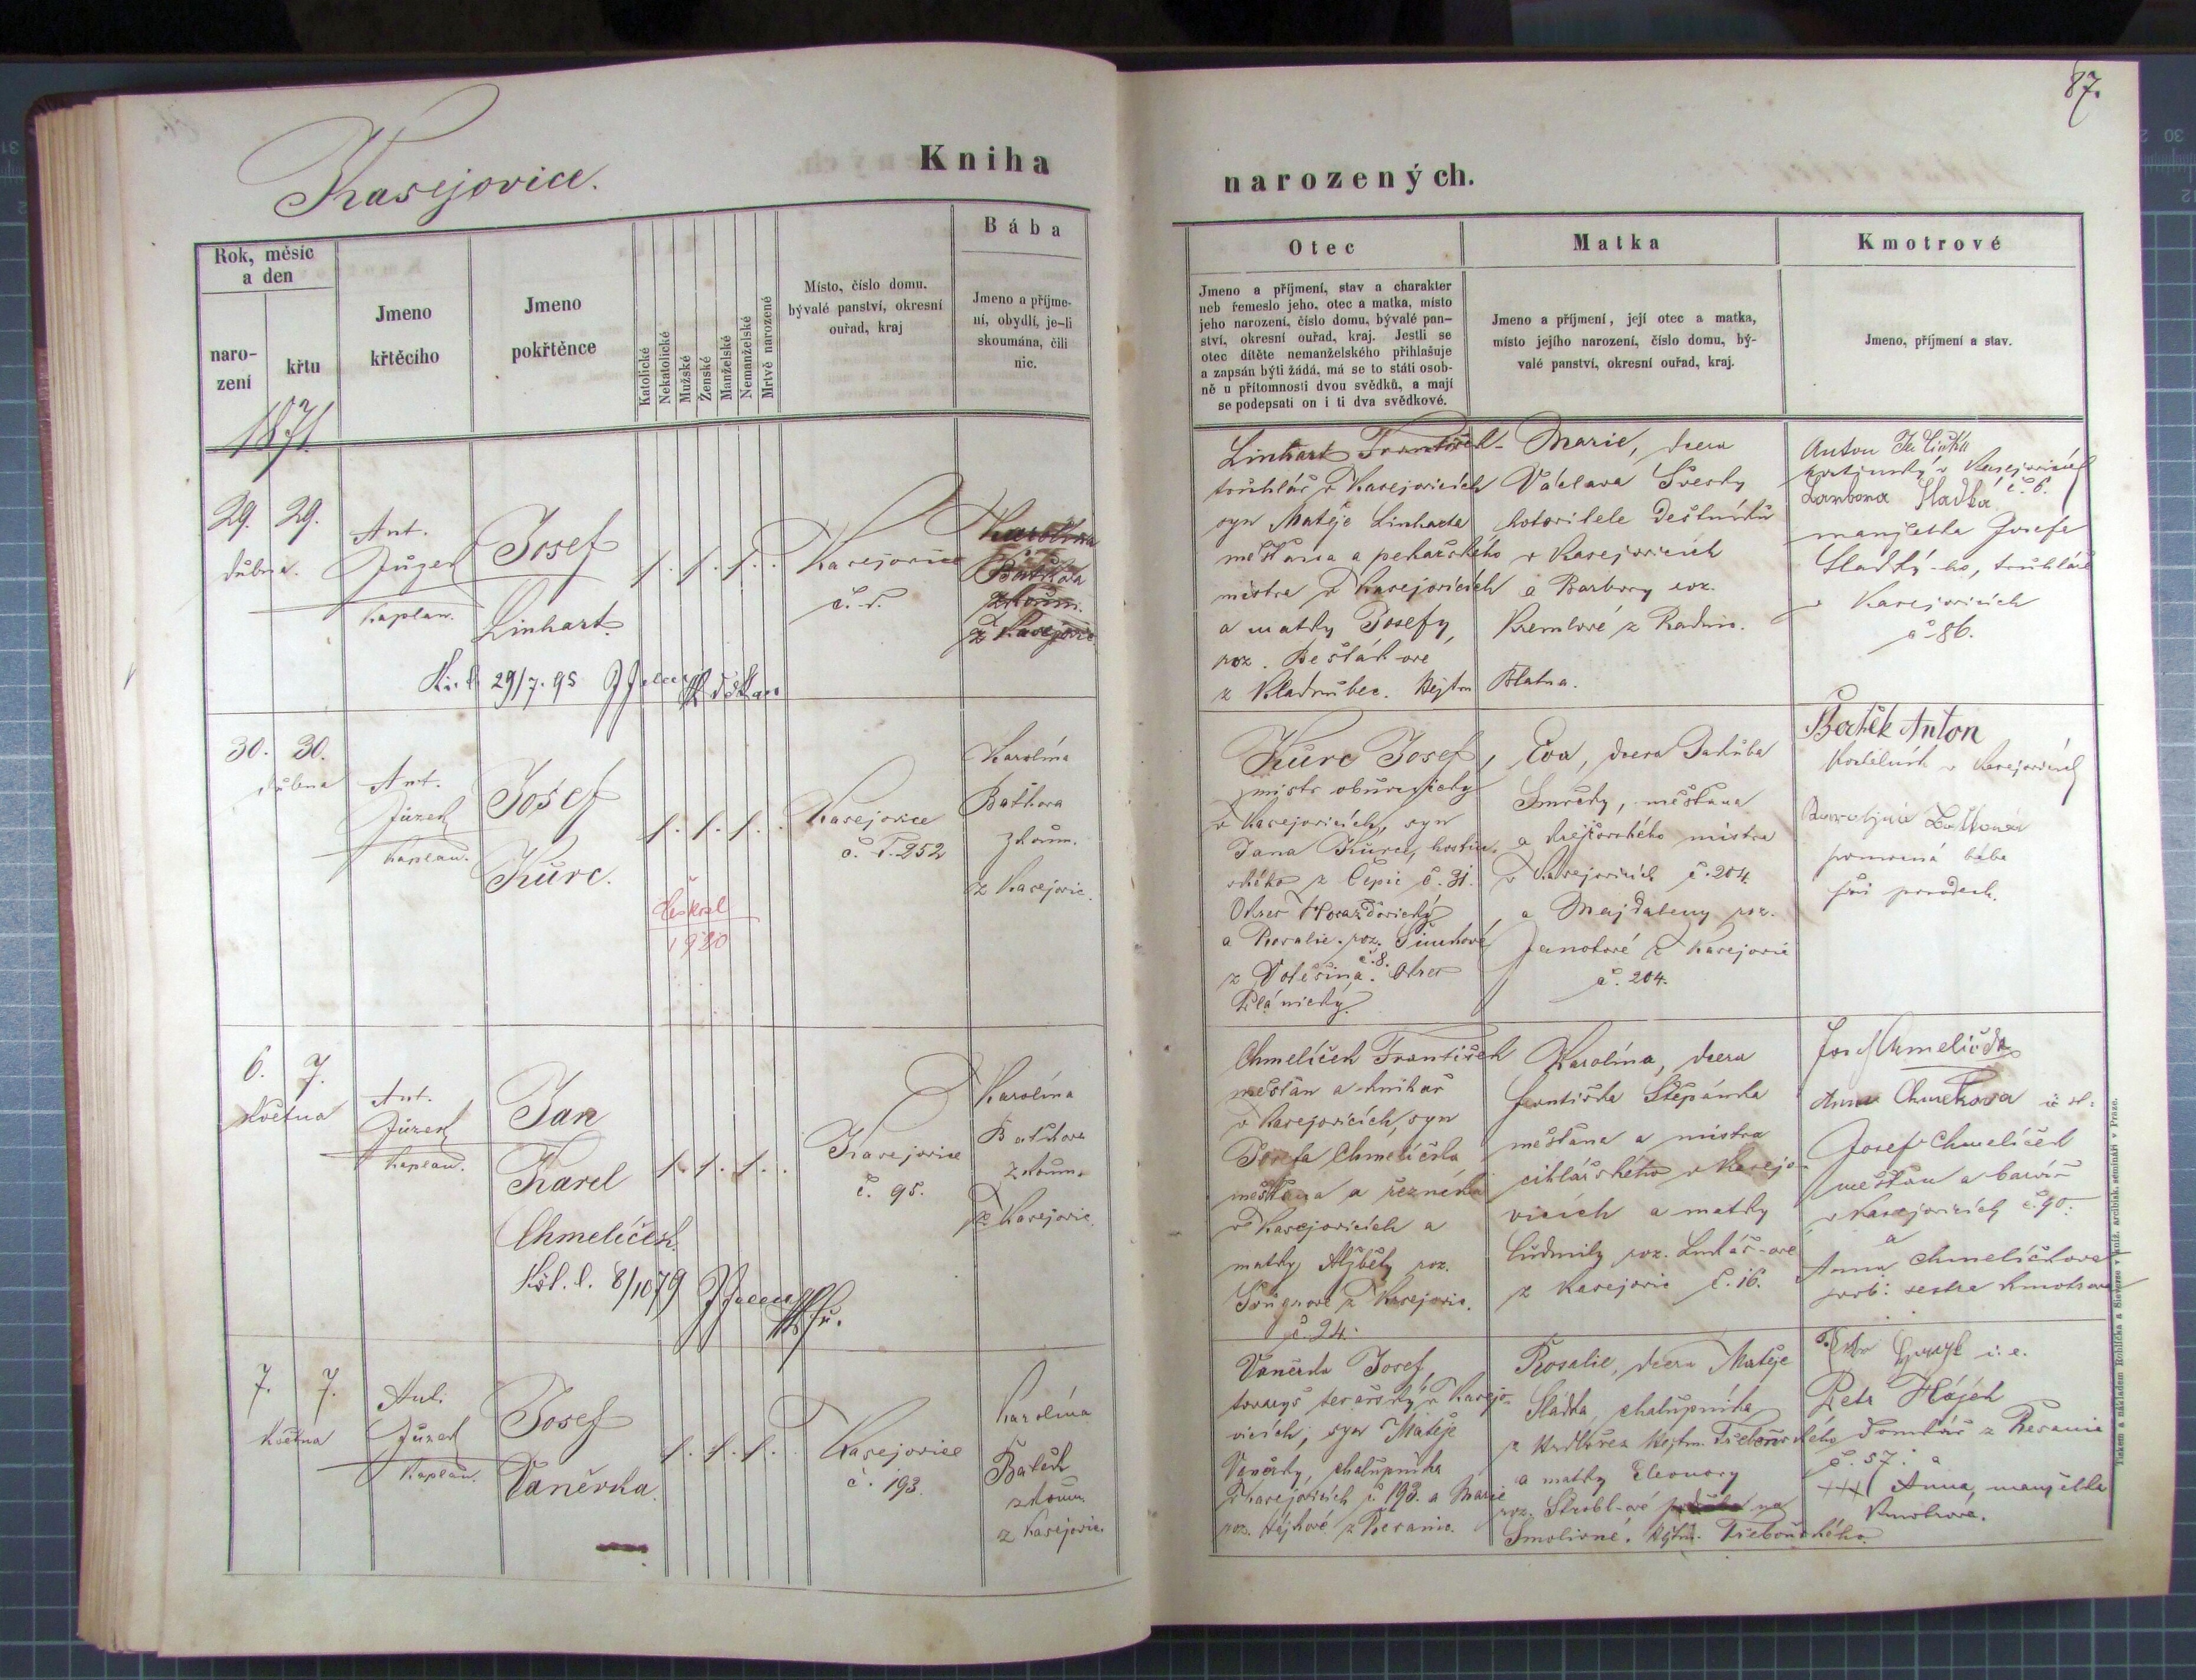 87.
Kasejovice.
Kniha
narozených.
Rok, měsíc
a den
naro-
zení
křtu
Jmeno
křtěcího
Jmeno
pokřtěnce
Katolické
Nekatolické
Mužské
Ženské
Manželské
Nemanželské
Mrtvě narozené
Místo, číslo domu,
bývalé panství, okresní
ouřad, kraj
Bába
Jmeno a příjme-
ní, obydlí, je-li
skoumána, čili
nic.
Otec
Jmeno a příjmení, stav a charakter
neb řemeslo jeho, otec a matka, místo
jeho narození, číslo domu, bývalé pan-
ství, okresní ouřad, kraj. Jestli se
otec dítěte nemanželského přihlašuje
a zapsán býti žádá, má se to státi osob-
ně u přítomnosti dvou svědků, a mají
se podepsati on i ti dva svědkové.
Matka
Jmeno a příjmení, její otec a matka,
místo jejího narození, číslo domu, bý-
valé panství, okresní ouřad, kraj.
Kmotrové
Jmeno, příjmení a stav.
1871
29. 29.
dubna.
Ant.
Jůzek
Kaplan.
Josef
Linhart.
1. 1. 1.
Kasejovice
Karolina
Baťková
zkoum.
z Kasejovic.
29/7. 95
Linhart František
truhlář v Kasejovicích
syn Matěje Linharta
měšťana a pekařského
mistra v Kasejovicích
a matky Josefy,
roz.
z Kladrubec. Hejtm
Marie, dcera
Václava
hotovitele deštníků
v Kasejovicích
a Barbory roz.
Blatna.
Anton
v Kasejovicích
č. 6.
Sladká
manželka Josefa
Sladký-ho, truhláře
v Kasejovicích
č. 86.
30. 30.
dubna
Ant.
Jůzek
Kaplan.
Josef
Kůrc.
1. 1. 1.
1920
Kasejovice
č. 252
Karolína
Baťkova
zkoum.
z Kasejovic.
Kůrc Josef,
mistr obuvnický
v Kasejovicích, syn
Jana Kůrce,
z Čepic č. 31.
Okres Horažďovický
a Rosalie roz.
č. 8.
Okres
Plánický
Eva, dcera Jakuba
Smrčky, měšťana
a krejčovského mistra
v Kasejovicích č. 204.
a Majdaleny roz.
z Kasejovic
č. 204.
Anton
v Kasejovicích
pomocná bába
při porodech.
6. 7.
Května
Ant.
Jůzek
Kaplan.
Jan
Karel
Chmelíček.
8/10 79
1. 1. 1.
Kasejovice
č. 95.
Karolína
Baťkova
zkoum.
z Kasejovic.
Chmelíček František
měšťan a knihař
v Kasejovicích, syn
Josefa Chmelíčka
měšťana a řezníka
v Kasejovicích a
matky Alžběty roz.
z Kasejovic.
č. 24.
Karolína, dcera
Františka Štěpánka
měšťana a mistra
cihlářského v Kasejo-
vicích a matky
Ludmily roz. Lukáš-ové
z Kasejovic č. 16.
Josef Chmelíček
Josef Chmelíček
měšťan a barvíř
v Kasejovicích č. 90.
a
Anna Chmelíčkova
sestra kmotrova
7. 7.
Května
Ant.
Jůzek
Kaplan.
Josef
Vaněrka.
1. 1. 1.
Kasejovice
č. 193.
Karolína
Baťek
zkoum.
z Kasejovic.
Vaněrka Josef,
tovaryš tesařský v Kasejo-
vicích, syn Matěje
Vaněrky, chalupníka
v Kasejovicích č. 193. a Marie
roz. Hájkové z Řesanic.
Rosalie, dcera Matěje
Sládka, chalupníka
a matky Eleonory
roz. Strobl-ové na
Smolivně.
Petr Hájek
z Řesanic
č. 57. a
+++ Anna, manželka
Kmotrova.
Tiskem a nákladem Rohlíčka a Sieverse v kníž. arcibisk. semináři v Praze.